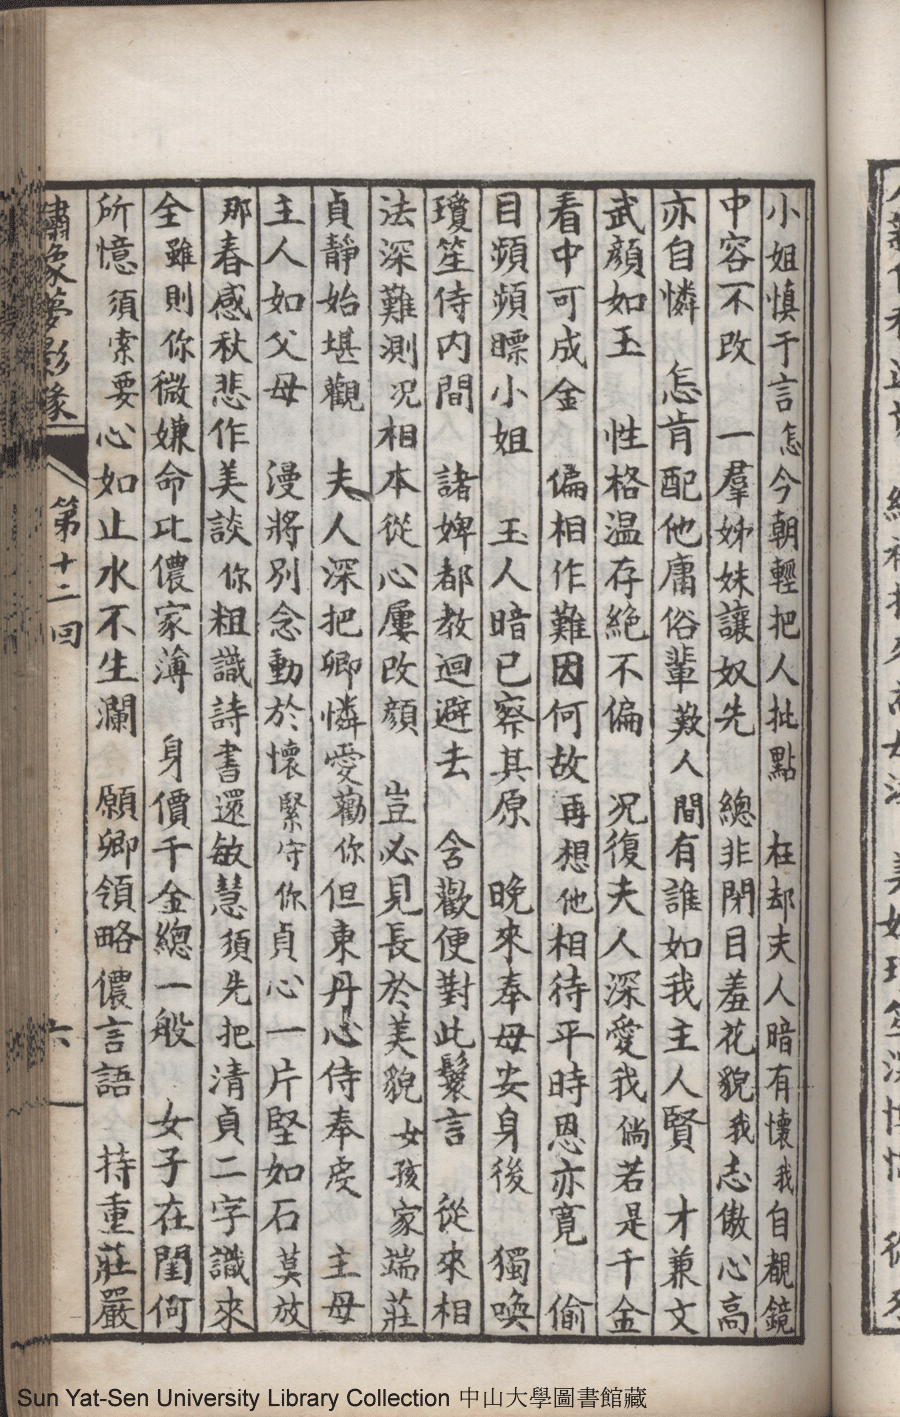 小姐慎于言怎今朝輕把人批點　枉却夫人暗有懷我自覩鏡
中容不改　一羣姊妹讓奴先　總非閉目羞花貌我志傲心高
亦自憐　怎肯配他庸俗輩歎人間有誰如我主人賢　才兼文
武顏如玉　性格温存絶不偏　况復夫人深愛我倘若是千金
看中可成金　偏相作難因何故再想他相待平時恩亦寛　偷
目頻頻瞟小姐　玉人暗已察其原　晚來奉母安身後　獨喚
瓊笙侍内間　諸婢都教迴避去　含歡便對此鬟言　從來相
法深難測况相本從心屢改顏　豈必見長於美貌女孩家端莊
貞靜始堪觀　夫人深把卿憐愛勸你但東丹心侍奉虔　主母
主人如父母　漫將別念動於懷緊守你貞心一片堅如石莫放
那春感秋悲作美談你粗識詩書還敏慧須先把清貞二字識來
全雖則你微嫌命比儂家薄　身價千金總一般　女子在閨何
所憶須索要心如止水不生瀾　願卿領略儂言語　持重莊嚴
繡像夢影緣　第十二回　六
Sun Yat-Sen University Library Collection 中山大學圖書館藏